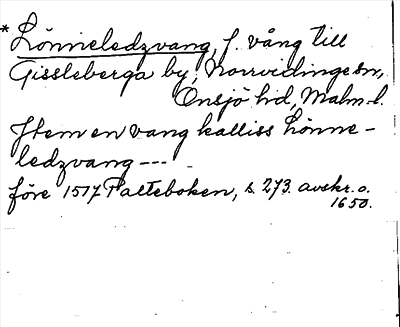 * Lönneledzvang, f. vång till
Gissleberga by, Norrvidinge sn,
Onsjö hd, Malm. l.
Item en vang kalliss Lönne-
ledzvang ---
före 1517 Palteboken, s. 273. avskr. o.
1650.